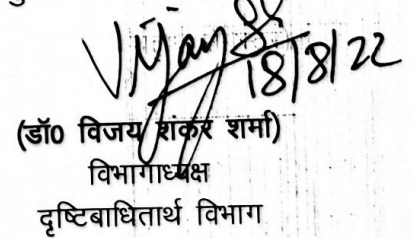 Vijay
18/8/22
(डॉ0 विजय शंकर शर्मा)
विभागाध्यक्ष
दृष्टिबाधितार्थ विभाग